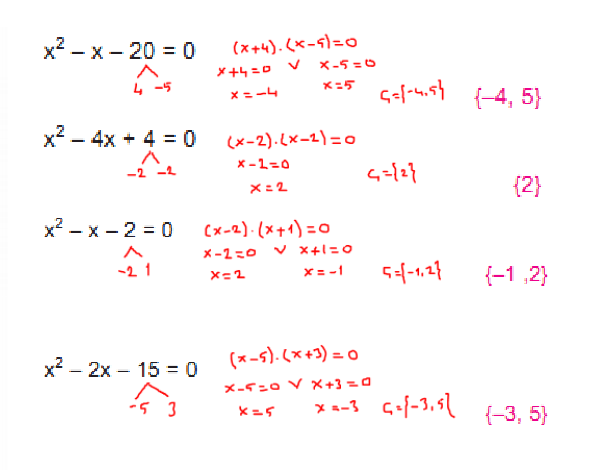 x² – x – 20 = 0 (x+4).(x-5)=0
4 -5 x+4=0 ∨ x-5=0
x=-4 x=5 Ç={-4,5} {–4, 5}
x² – 4x + 4 = 0 (x-2).(x-2)=0
-2 -2 x-2=0
x=2 Ç={2} {2}
x² – x – 2 = 0 (x-2).(x+1)=0
-2 1 x-2=0 ∨ x+1=0
x=2 x=-1 Ç={-1,2} {–1 ,2}
x² – 2x – 15 = 0 (x-5).(x+3)=0
-5 3 x-5=0 ∨ x+3=0
x=5 x=-3 Ç={-3,5} {–3, 5}